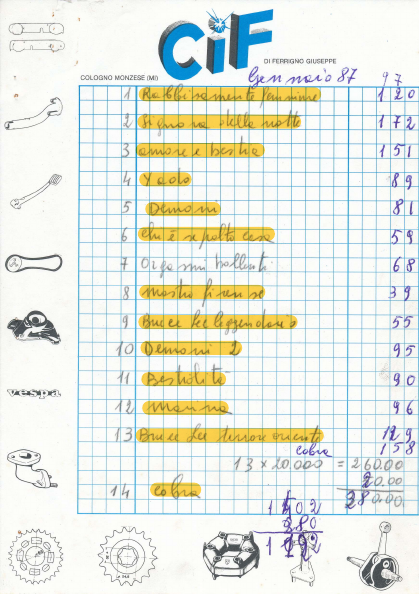 CiF
DI FERRIGNO GIUSEPPE
COLOGNO MONZESE (MI)
Gennaio 87 97
1 Rabbiosamente femmine 120
2 Signora della notte 172
3 amore e bestia 151
4 Yado 89
5 Demoni 81
6 chi è sepolto casa 59
7 Orgasmi bollenti 68
8 mostro firense 39
9 Bruce Lee leggendario 55
10 Demoni 2 95
11 Bestialità 90
12 Marina 96
13 Bruce Lee terrore oriente 129
cobra 158
13 x 20.000 = 260.00
20.00
280.00
14 cobra
280
vespa